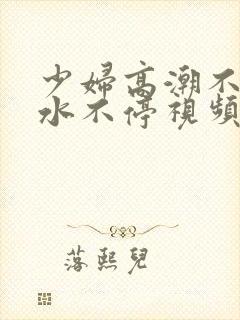 少婦高潮不
水不停視頻
落熙兒